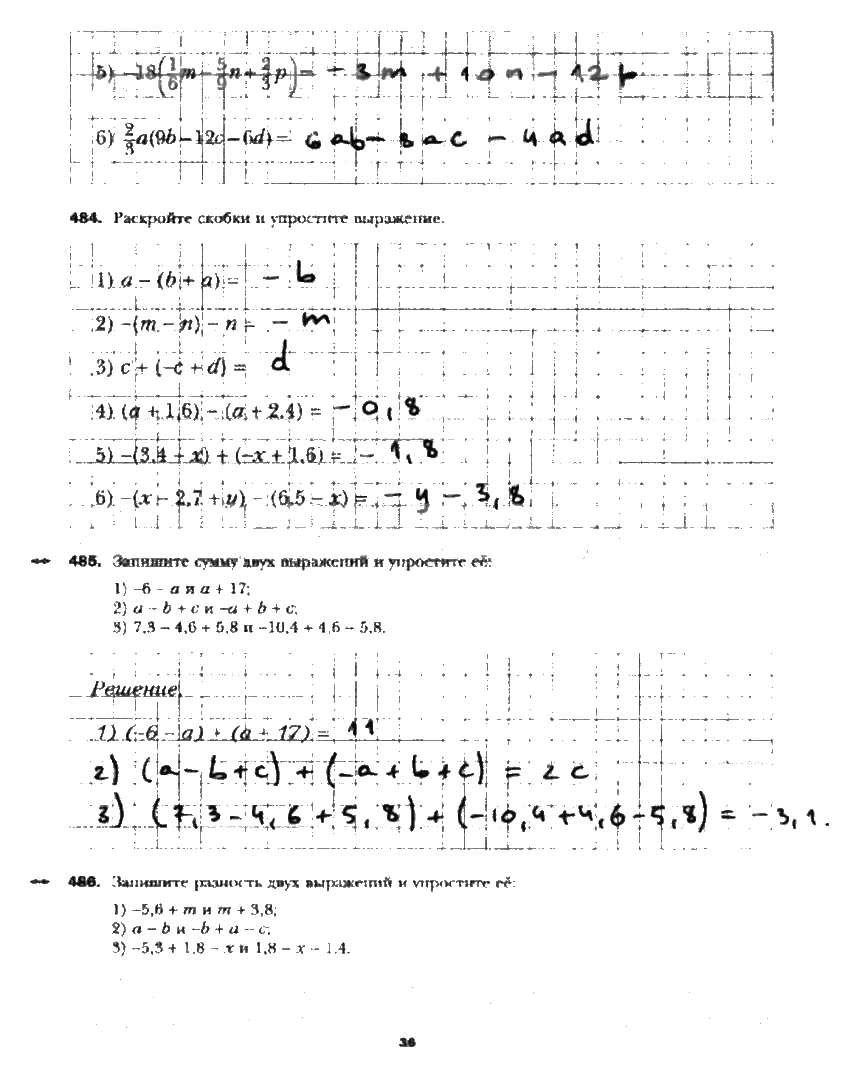 5) −18(1/6 m − 5/9 n + 2/3 p) = − 3m + 10n − 12p
6) 2/3 a(9b − 12c − 6d) = 6ab − 8ac − 4ad
484. Раскройте скобки и упростите выражение.
1) a − (b + a) = − b
2) −(m − n) − n = − m
3) c + (−c + d) = d
4) (a + 1,6) − (a + 2,4) = − 0,8
5) −(3,4 − x) + (−x + 1,6) = − 1,8
6) −(x − 2,7 + y) − (6,5 − x) = − y − 3,8
485. Запишите сумму двух выражений и упростите её:
1) −6 − a и a + 17;
2) a − b + c и −a + b + c;
3) 7,3 − 4,6 + 5,8 и −10,4 + 4,6 − 5,8.
Решение.
1) (−6 − a) + (a + 17) = 11
2) (a − b + c) + (−a + b + c) = 2c
3) (7,3 − 4,6 + 5,8) + (−10,4 + 4,6 − 5,8) = − 3,1.
486. Запишите разность двух выражений и упростите её:
1) −5,6 + m и m + 3,8;
2) a − b и −b + a − c;
3) −5,3 + 1,8 − x и 1,8 − x − 1,4.
36